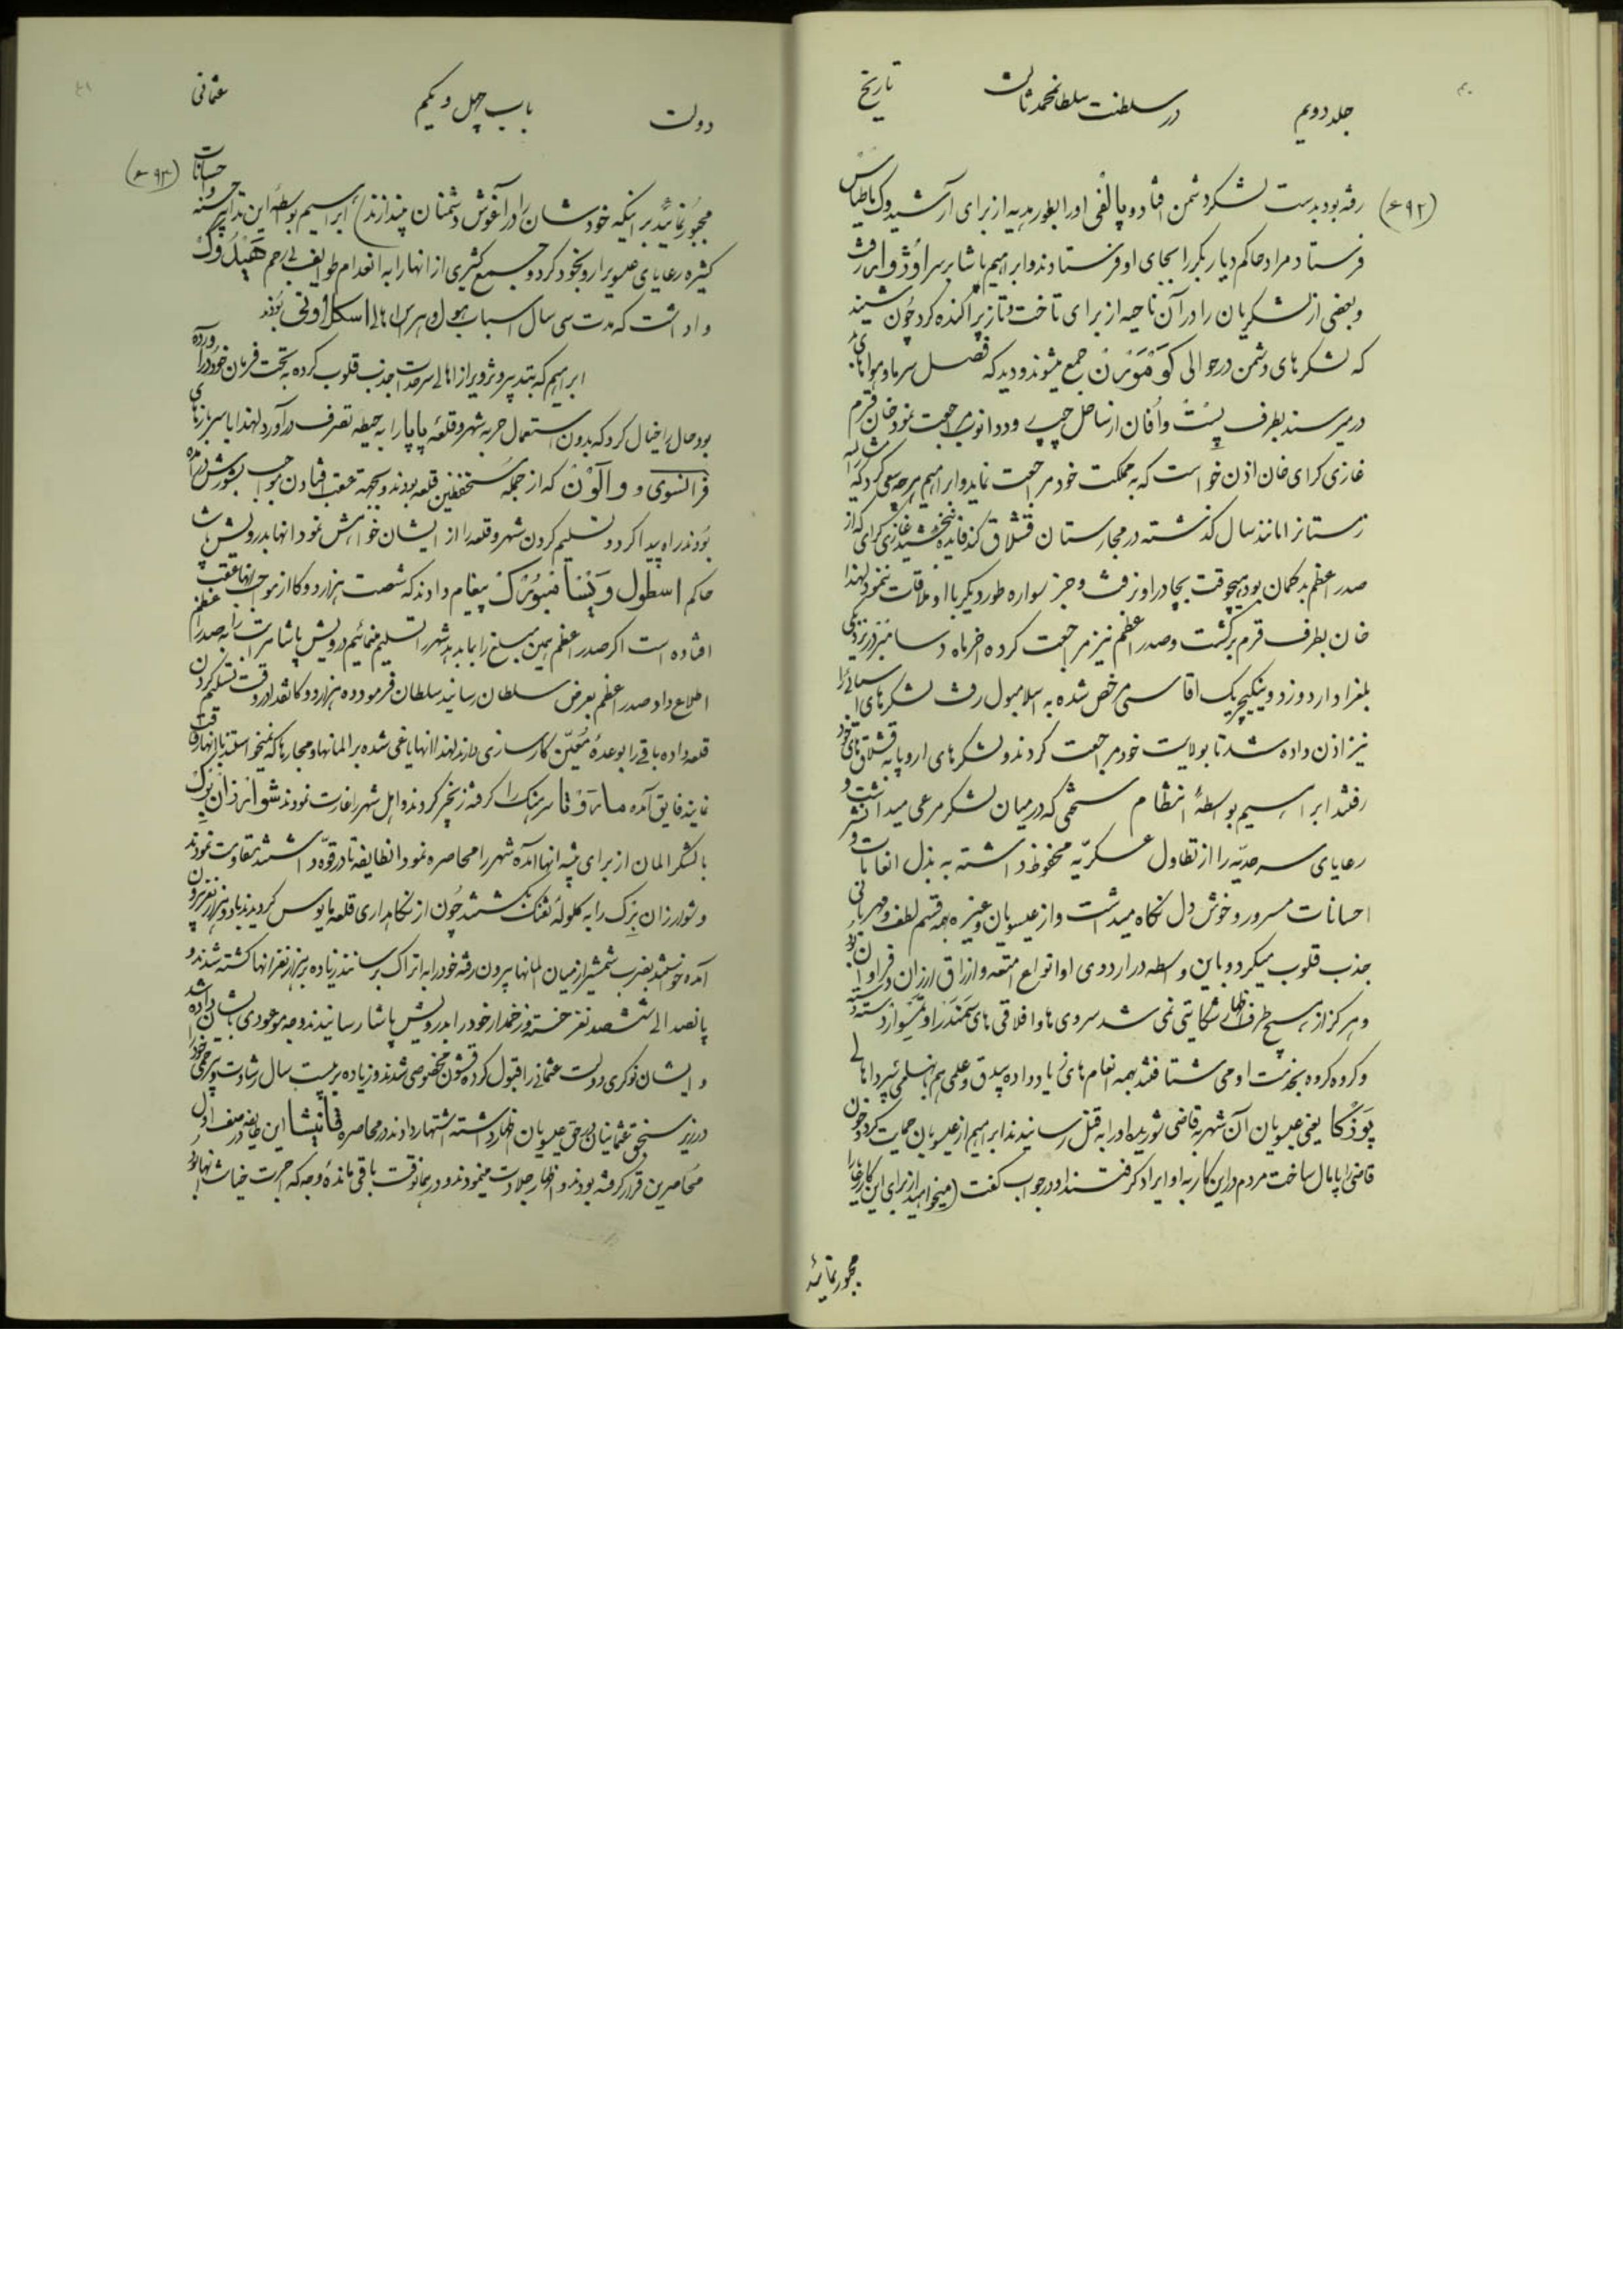 جلد دویم
در سلطنت سلطانمحمد ثالث
تاریخ
رفته بود بدست لشکر دشمن افتاد و پالفی اورا بطور هدیه از برای آرشیدوک ماطیاس
فرستاد مراد حاکم دیار بکر را بجای او فرستادند و ابراهیم پاشا بر سر
و بعضی از لشکریان را در آن ناحیه از برای تاخت و تاز پراکنده کرد چون شنید
که لشکرهای دشمن در حوالی کومورن جمع میشوند و دید که فصل سرما و هواهای
در میرسند بطرف پست و از ساحل چپ دانوب مراجعت نمود خان قرم
غازی کرای خان اذن خواست که به مملکت خود مراجعت نماید و ابراهیم هر چه سعی کرد که
زمستانرا مانند سال گذشته در مجارستان قشلاق کند فایده نبخشید غازی کرای که از
صدر اعظم بدگمان بود هیچوقت بچادر او نرفت و جز سواره طور دیگر با او ملاقات ننمود لهذا
خان بطرف قرم برگشت و صدر اعظم نیز مراجعت کرده آخر ماه دسامبر در نزدیکی
بلغراد اردو زد و ینکیچریک اقاسی مرخص شده به اسلامبول رفت لشکرهای آسیائی را
نیز اذن داده شد تا بولایت خود مراجعت کردند و لشکرهای اروپا به قشلاق های خود
رفتند ابراهیم بواسطهٔ انتظام سختی که در میان لشکر مرعی میداشت و
رعایای سرحدیه را از تطاول عسکریه محفوظ داشته به بذل انعامات و
احسانات مسرور و خوش دل نگاه میداشت و از عیسویان و غیره همه قسم لطف و مهربانی
جذب قلوب میکرد و باین واسطه در اردوی او انواع امتعه و ارزاق ارزان و فراوان بود
و هرگز از هیچ طرف اظهار شکایتی نمی شد
و گروه گروه بخدمت او می شتافتند بهمه انعام های زیاد داده بیدق و علمی هم بانها اهالی
یعنی عیسویان آن شهر به قاضی شوریده اورا به قتل رسانیدند ابراهیم از عیسویان حمایت کرد و خون
قاضی را پامال ساخت مردم در این کار به او ایراد گرفتند او در جواب گفت (میخواهید از برای این کار رعایا را
مجبور نمائید
دولت
باب چهل و یکم
عثمانی
مجبور نمائید بر اینکه خودشان را در آغوش دشمنان بیندازند) ابراهیم بواسطهٔ این تدابیر حسنه و احسانات
کثیره رعایای عیسوی را رو بخود کرد و جمع کثیری از انها را به انعدام طوایف بی رحم هیدوک
واداشت که مدت سی سال اسباب هول و هراس اهالی اسکلاونی بودند
ابراهیم که بتدبیر و تزویر از اهالی سرحدات جذب قلوب کرده به تحت فرمان خود درآورده
بود حال را خیال کرد که بدون استعمال حربه شهر و قلعهٔ پاپا را به حیطه تصرف درآورد لهذا با سربازهای
فرانسوی و والون که از جمله مستحفظین قلعه بودند و بجهة عقب افتادن مواجب بشورش درآمده
بودند راه پیدا کرد و تسلیم کردن شهر و قلعه را از ایشان خواهش نمود انها بدرویش پاشا
حاکم اسطول ویسامبورک پیغام دادند که شصت هزار دوکا از مواجب انها عقب
افتاده است اگر صدر اعظم همین مبلغ را بما بدهد شهر را تسلیم مینمائیم درویش پاشا مراتب را به صدر اعظم
اطلاع داد صدر اعظم بعرض سلطان رسانید سلطان فرمود ده هزار دوکا نقدا در وقت تسلیم کردن
قلعه داده باقی را بوعدهٔ معین کارسازی دارند لهذا انها یاغی شده بر المانها و مجارها که میخواستند با انها رفاقت
نمایند فایق آمده سرهنگ را گرفته زنجیر کردند و اهل شهر را غارت نمودند شوارزان برک
با لشکر المان از برای تنبیه انها آمده شهر را محاصره نمود انطایفه تا در قوه داشتند مقاومت نمودند
و شوارزان برک را به گلولهٔ تفنگ کشتند چون از نگاهداری قلعه مایوس گردیدند با دو هزار نفر بیرون
آمده خواستند بضرب شمشیر از میان المانها بیرون رفته خود را به اتراک برسانند زیاده بر هزار نفر انها کشته شدند و
پانصد الی ششصد نفر خسته و زخمدار خود را بدرویش پاشا رسانیدند وجه موعودی بایشان داده شد
و ایشان نوکری دولت عثمانی را قبول کرده قشون مخصوصی شدند و زیاده بر بیست سال رشادت و بی رحمی خود را
در زیر سنجق عثمانیان در حق عیسویان اظهار داشته اشتهار دادند در محاصره قانیشا این طایفه در صف اول
محاصرین قرار گرفته بودند و اظهار جلادت مینمودند و در همانوقت باقی ماندهٔ وجه که اجرت خیانت انها بود